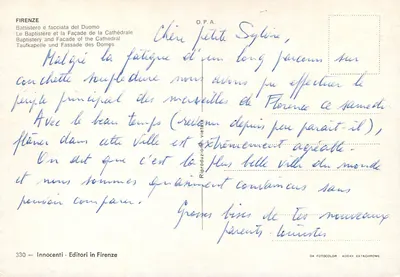 FIRENZE
Battistero e facciata del Duomo
Le Baptistère et la Façade de la Cathédrale
Baptistery and Façade of the Cathedral
Taufkapelle und Fassade des Domes
O.P.A.
Chère petite Sylvine,
Malgré la fatigue d'un long parcours sur
couchette nous avons pu effectuer le
périple principal des merveilles de Florence ce samedi
Avec le beau temps (revenu depuis peu paraît-il),
flâner dans cette ville est extrêmement agréable.
On dit que c'est la plus belle ville du monde
et nous sommes quasiment convaincus sans
pouvoir comparer.
Grosses bises de tes nouveaux
parents-touristes
330 - Innocenti - Editori in Firenze